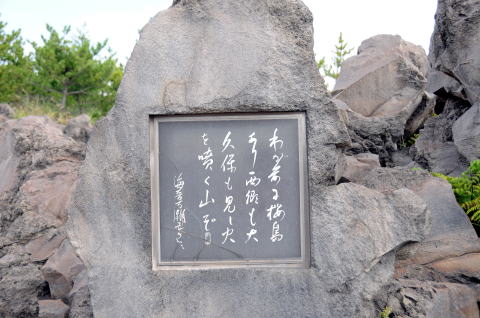 わが前に桜島
あり西郷も大
久保も見し火
を噴く山ぞ
海音寺潮五郎